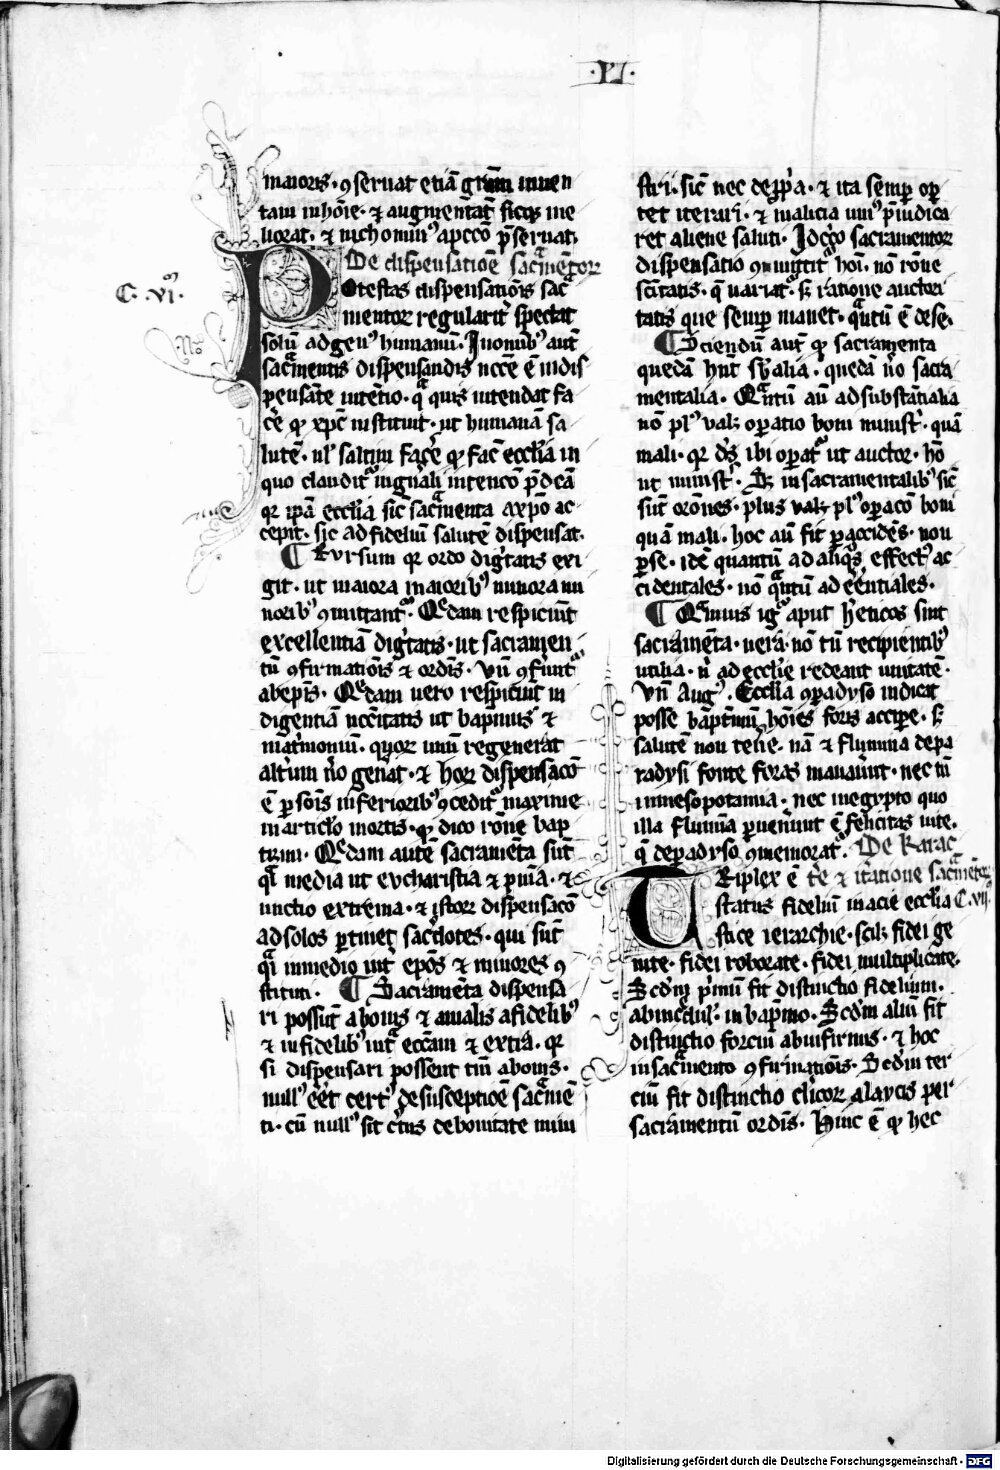 ·VI·
maioris · ꝯseruat etiā grām inuen
tam in hoīe · ⁊ augmentat͛ sicq; me
liorat · ⁊ nichomin⁹ a pccō p̄seruat.
De dispensatiōe sac̄mentorꝝ
C · vi ·
Potestas dispensatiōis sac̄
mentorꝝ regularit͛ spectat
solū ad gen⁹ humanū · In omib⁹ aut̄
sac̄mentis dispensandis nccē ē indis
pensāte intētio · q̄ quis intendat fa
c̄e qꝫ xp̄c instituit · ut humanā sa
lutē · ul' saltim fac̄e qꝫ fac̄ eccl'ia in
quo claudit͛ in gn̄ali intencō p̄dc̄a
qꝛ ip̄a eccl'ia sic̄ sac̄menta a xp̄o ac
cepit · sic ad fideliū salutē dispensat.
¶ Rursum qꝛ ordo dig͛tatis exi
git · ut maiora maiorib⁹ minora mi
norib⁹ ꝯmittant͛ · Q̄dam respiciūt
excellentiā dig͛tatis · ut sacramen
tū ꝯfirmatiōis ⁊ ordīs · Vn̄ ꝯfunt͛
ab ep̄is · Q̄dam uero respiciūt in
digentiā nccītatis ut baptim⁹ ⁊
mat͛moniū · quoꝝ unū regenerat
alt͛um u͛o gen̄at · ⁊ hoꝝ dispensacō
ē p̱sōis inferiorib⁹ ꝯcedit͛ maxime
in articl'o mortis · qꝫ dico rōne bap
tismi · Q̄dam autē sacramēta sūt
q̄i media ut eucharistia ⁊ pn̄ia · ⁊
unctio extrema · ⁊ istoꝝ dispensacō
ad solos p̱tinet sac̄dotes · qui sūt
q̄i in medio int͛ ep̄os ⁊ minores ꝯ
stituti · ¶ Sacramēta dispensa
ri possūt a bonis ⁊ a malis a fidelib⁹
⁊ infidelib⁹ int͛ eccām ⁊ ext͛a · qꝛ
si dispensari possent tm̄ a bonis ·
null⁹ eēt cert⁹ de susceptioē sac̄mē
ti · cū null⁹ sit c̄tus de bonitate mini
stri · sic̄ nec de pp̄'a · ⁊ ita semp̱ opꝫ
tet iterari · ⁊ malicia uni⁹ p̄iudica
ret aliene saluti · Idc̄o sacramentoꝝ
dispensatio ꝯmittit͛ hoī · nō rōne
sc̄itatis · q̄ uariat͛ · sꝫ ratione auctori
tatis que semp̱ manet · q̄tū ē de se ·
¶ Sciendū aut̄ qꝫ sacramenta
quedā hn̄t sb̄alia · quedā u͛o sacra
mentalia · Q̄ntū aū ad substātialia
nō pl⁹ ualꝫ oꝑatio boni minist͛ · quā
mali · qꝛ d's ibi oꝑat͛ ut auctor · hō
ut minist͛ · Sꝫ in sacramentalib⁹ sic̄
sūt orōnes · plus ualꝫ pl⁹ oꝑacō boni
quā mali · hoc aū fit ꝑ accidēs · non
ꝑ se · idē quantū ad aliqͦs effect⁹ ac
cidentales · nō q̄ntū ad eēntiales ·
¶ Q̄muis ig͛ aput h͛eticos sint
sacramēta · uera · nō tn̄ recipientib⁹
utilia · n̄ ad eccl'ie redeant unitatē ·
Vn̄ Aug⁹ · Eccl'ia ꝯꝑadyso indicat
posse bapt̄mū hoīes foris accipe · sꝫ
salutē non ten̄e · nā ⁊ flumina de pa
radysi fonte foras manau͛unt · nec tn̄
in mesopotamia · nec in egypto quo
illa flumīa ꝑuen̄unt ē felicitas uite ·
q̄ de ꝑadyso ꝯmemorat͛ · De karac
t̄e ⁊ it͛atione sac̄mētoꝝ C · vij
Triplex ē
status fideliū in acie eccl'ia
stice ierarchie · scilꝫ fidei ge
nite · fidei roborate · fidei multiplicate ·
Scdm̄ p͛mū fit distinctio fidelium ·
ab incdul' · in bap̄mo · Scd'm aliū fit
distinctio forciū ab infirmis · ⁊ hoc
in sac̄mento ꝯfirmatiōis · Scd'm ter
ciū fit distinctio cl'icoꝝ a laycis per
sacramentū ordīs · Hinc ē qꝫ hec
Digitalisierung gefördert durch die Deutsche Forschungsgemeinschaft - DFG